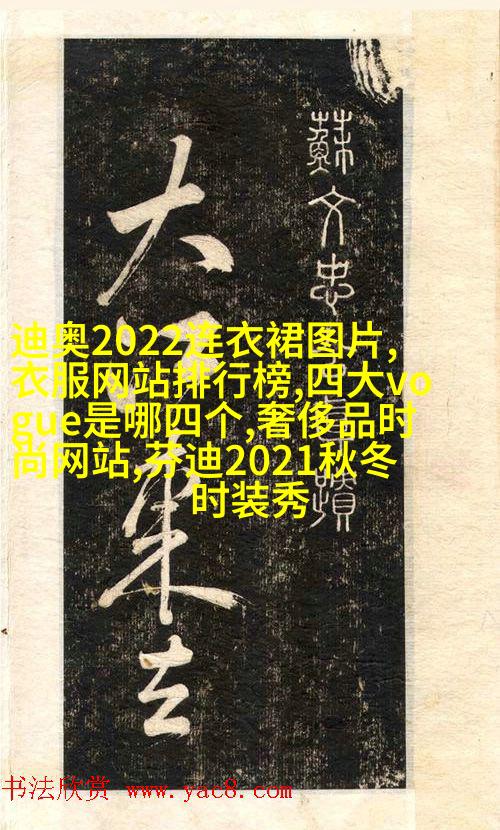 蘇文忠蹟
大東去
迪奥2022连衣裙图片,
衣服网站排行榜,四大vo
gue是哪四个,奢侈品时
尚网站,芬迪2021秋冬
时装秀
书法欣赏 www.yac8.com